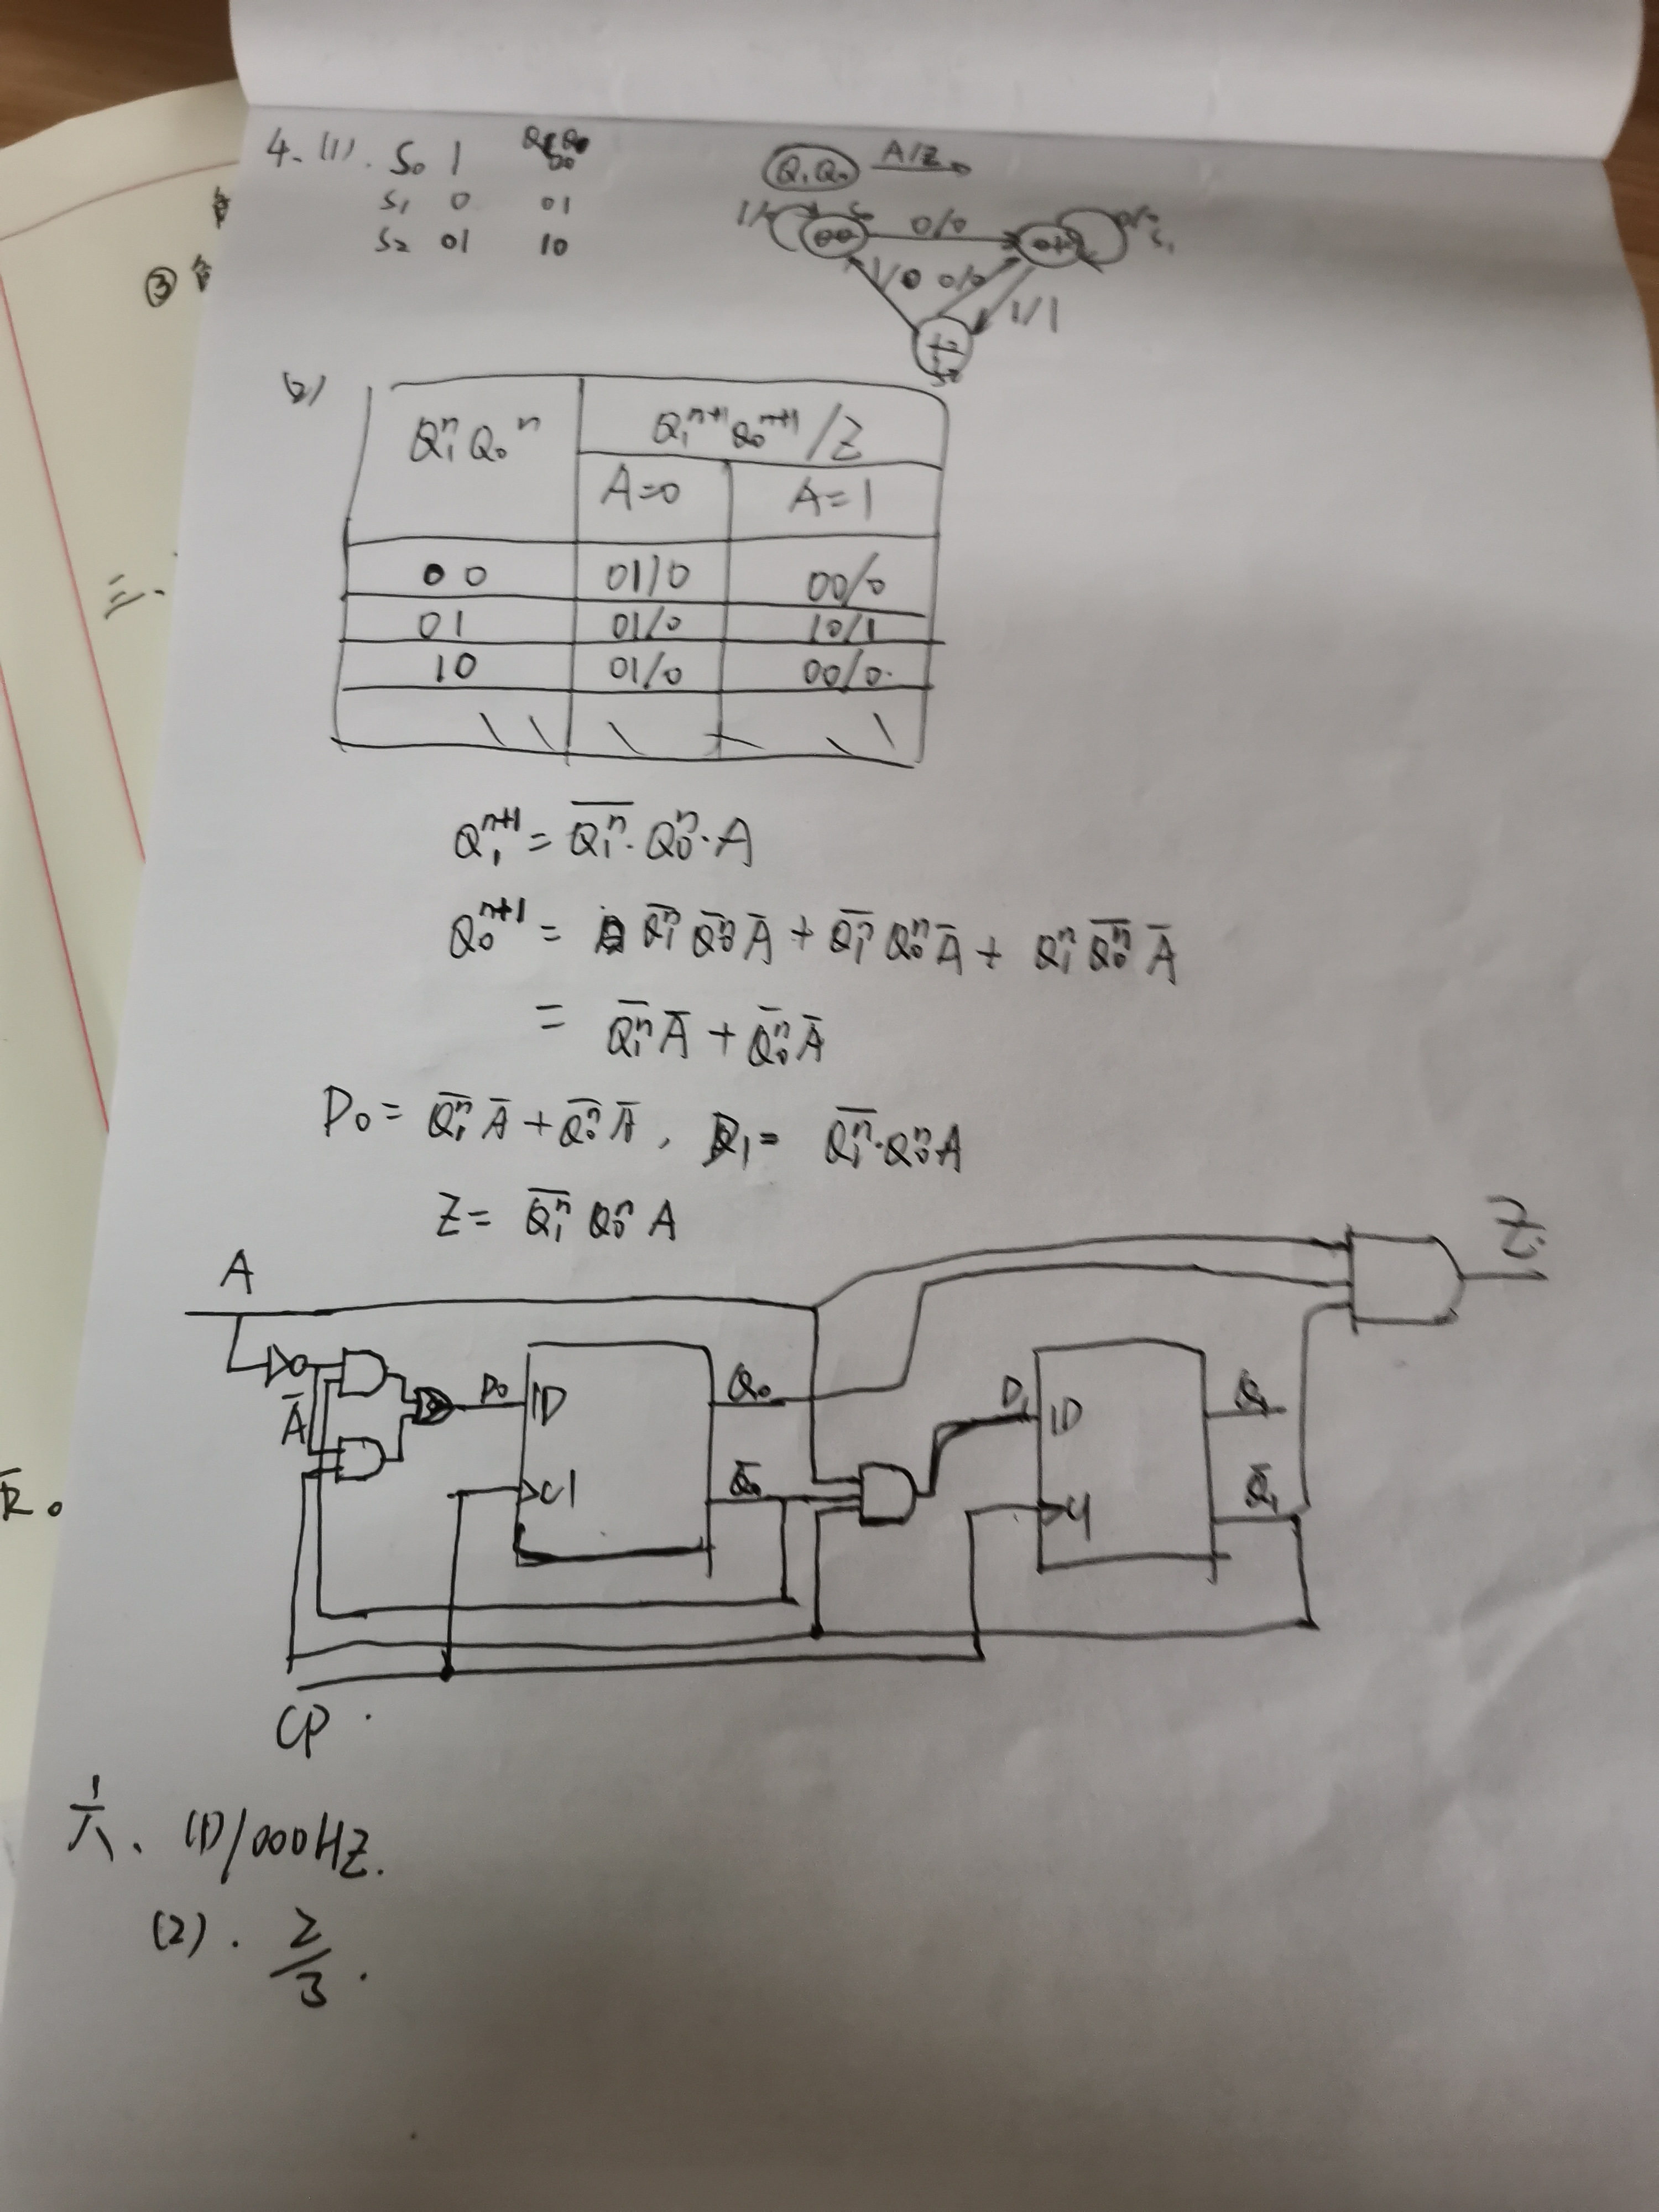 4. (1). S₀ 1
S₁ 0 01
S₂ 01 10
Q₁Q₀ A/Z
00 0/0
1/0 0/0 1/1
③
(2)
Q₁ⁿQ₀ⁿ Q₁ⁿ⁺¹Q₀ⁿ⁺¹/Z
A=0 A=1
00 01/0 00/0
01 01/0 10/1
10 01/0 00/0.
三.
Q₁ⁿ⁺¹ = Q̅₁ⁿ·Q₀ⁿ·A
Q₀ⁿ⁺¹ = Q̅₁ⁿ Q̅₀ⁿ A̅ + Q̅₁ⁿ Q₀ⁿ A̅ + Q₁ⁿ Q̅₀ⁿ A̅
= Q̅₁ⁿ A̅ + Q̅₀ⁿ A̅
D₀ = Q̅₁ⁿ A̅ + Q̅₀ⁿ A̅, D₁ = Q̅₁ⁿ·Q₀ⁿA
Z = Q̅₁ⁿ Q₀ⁿ A
A Z
A̅ D₀ 1D Q₀ D₁ 1D Q₁
C1 Q̅₀ C1 Q̅₁
CP
六、(1) 1000HZ.
(2). 2/3.